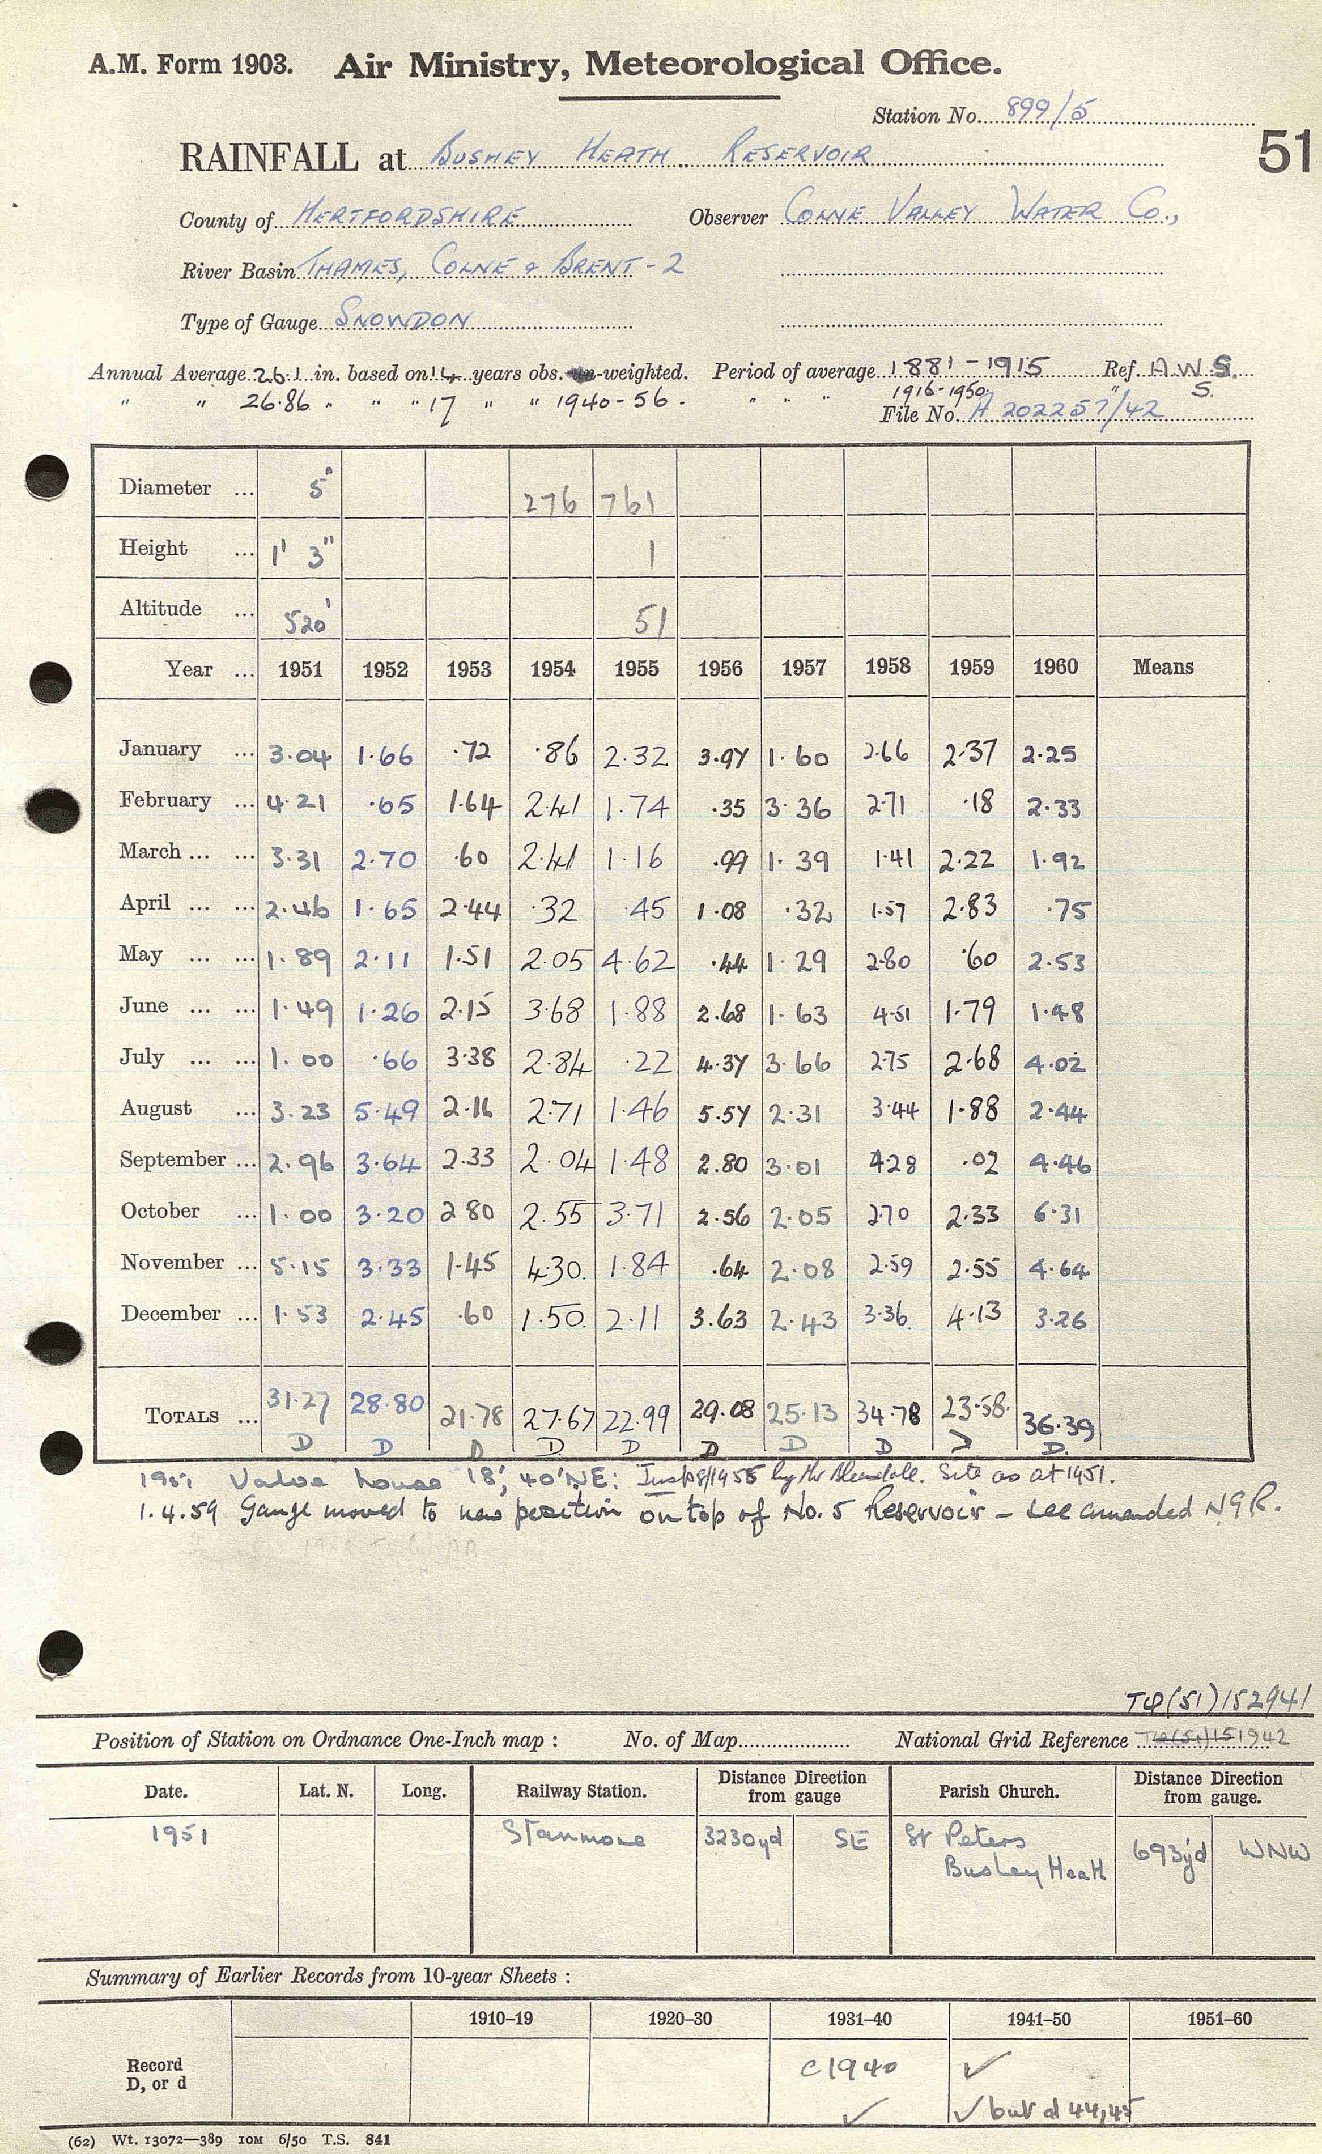 A.M. Form 1903. Air Ministry, Meteorological Office.
Station No. 899/5
51
RAINFALL at BUSHEY HEATH RESERVOIR
County of HERTFORDSHIRE Observer COLNE VALLEY WATER CO.,
River Basin THAMES, COLNE & BRENT - 2
Type of Gauge SNOWDON
Annual Average 26.1 in. based on 14 years obs. -weighted. Period of average 1881 - 1915 Ref. A W S.
" " 26.86 " " " 17 " " 1940 - 56. " " " 1916-1950 " S.
File No. A 202257/42
Diameter ... 5" 276 761
Height ... 1' 3" 1
Altitude ... 520' 51
Year ... 1951 1952 1953 1954 1955 1956 1957 1958 1959 1960 Means
January ... 3.04 1.66 .72 .86 2.32 3.97 1.60 2.66 2.37 2.25
February ... 4.21 .65 1.64 2.41 1.74 .35 3.36 2.71 .18 2.33
March ... ... 3.31 2.70 .60 2.41 1.16 .99 1.39 1.41 2.22 1.92
April ... ... 2.46 1.65 2.44 .32 .45 1.08 .32 1.57 2.83 .75
May ... ... 1.89 2.11 1.51 2.05 4.62 .44 1.29 2.80 .60 2.53
June ... ... 1.49 1.26 2.15 3.68 1.88 2.68 1.63 4.51 1.79 1.48
July ... ... 1.00 .66 3.38 2.84 .22 4.37 3.66 2.75 2.68 4.02
August ... 3.23 5.49 2.16 2.71 1.46 5.57 2.31 3.44 1.88 2.44
September ... 2.96 3.64 2.33 2.04 1.48 2.80 3.01 4.28 .02 4.46
October ... 1.00 3.20 2.80 2.55 3.71 2.56 2.05 2.70 2.33 6.31
November ... 5.15 3.33 1.45 4.30 1.84 .64 2.08 2.59 2.55 4.64
December ... 1.53 2.45 .60 1.50 2.11 3.63 2.43 3.36 4.13 3.26
TOTALS ... 31.27 28.80 21.78 27.67 22.99 29.08 25.13 34.78 23.58 36.39
D D D D D D D D D D
1951 Valve house 18', 40' NE: Insp 8/1955 by Mr Bleasdale. Site as at 1951.
1.4.59 Gauge moved to new position on top of No. 5 Reservoir - see amended N G R.
TQ(51)152941
Position of Station on Ordnance One-Inch map : No. of Map National Grid Reference TQ(51)151942
Date. Lat. N. Long. Railway Station. Distance Direction from gauge Parish Church. Distance Direction from gauge.
1951 Stanmore 3230yd SE St Peters Bushey Heath 693yd WNW
Summary of Earlier Records from 10-year Sheets :
1910–19 1920–30 1931–40 1941–50 1951–60
Record D, or d c1940 ✓
✓ ✓ but d 44,45
(62) Wt. 13072—389 10M 6/50 T.S. 841